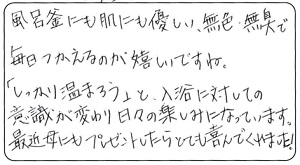 風呂釜にも肌にも優しい、無色・無臭で
毎日つかえるのが嬉しいですね。
「しっかり温まろう」と、入浴に対しての
意識が変わり日々の楽しみになっています。
最近母にもプレゼントしたらとても喜んでくれました!